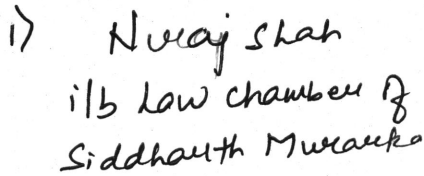 1) Niraj Shah
i/b Law Chamber of
Siddharth Murarka